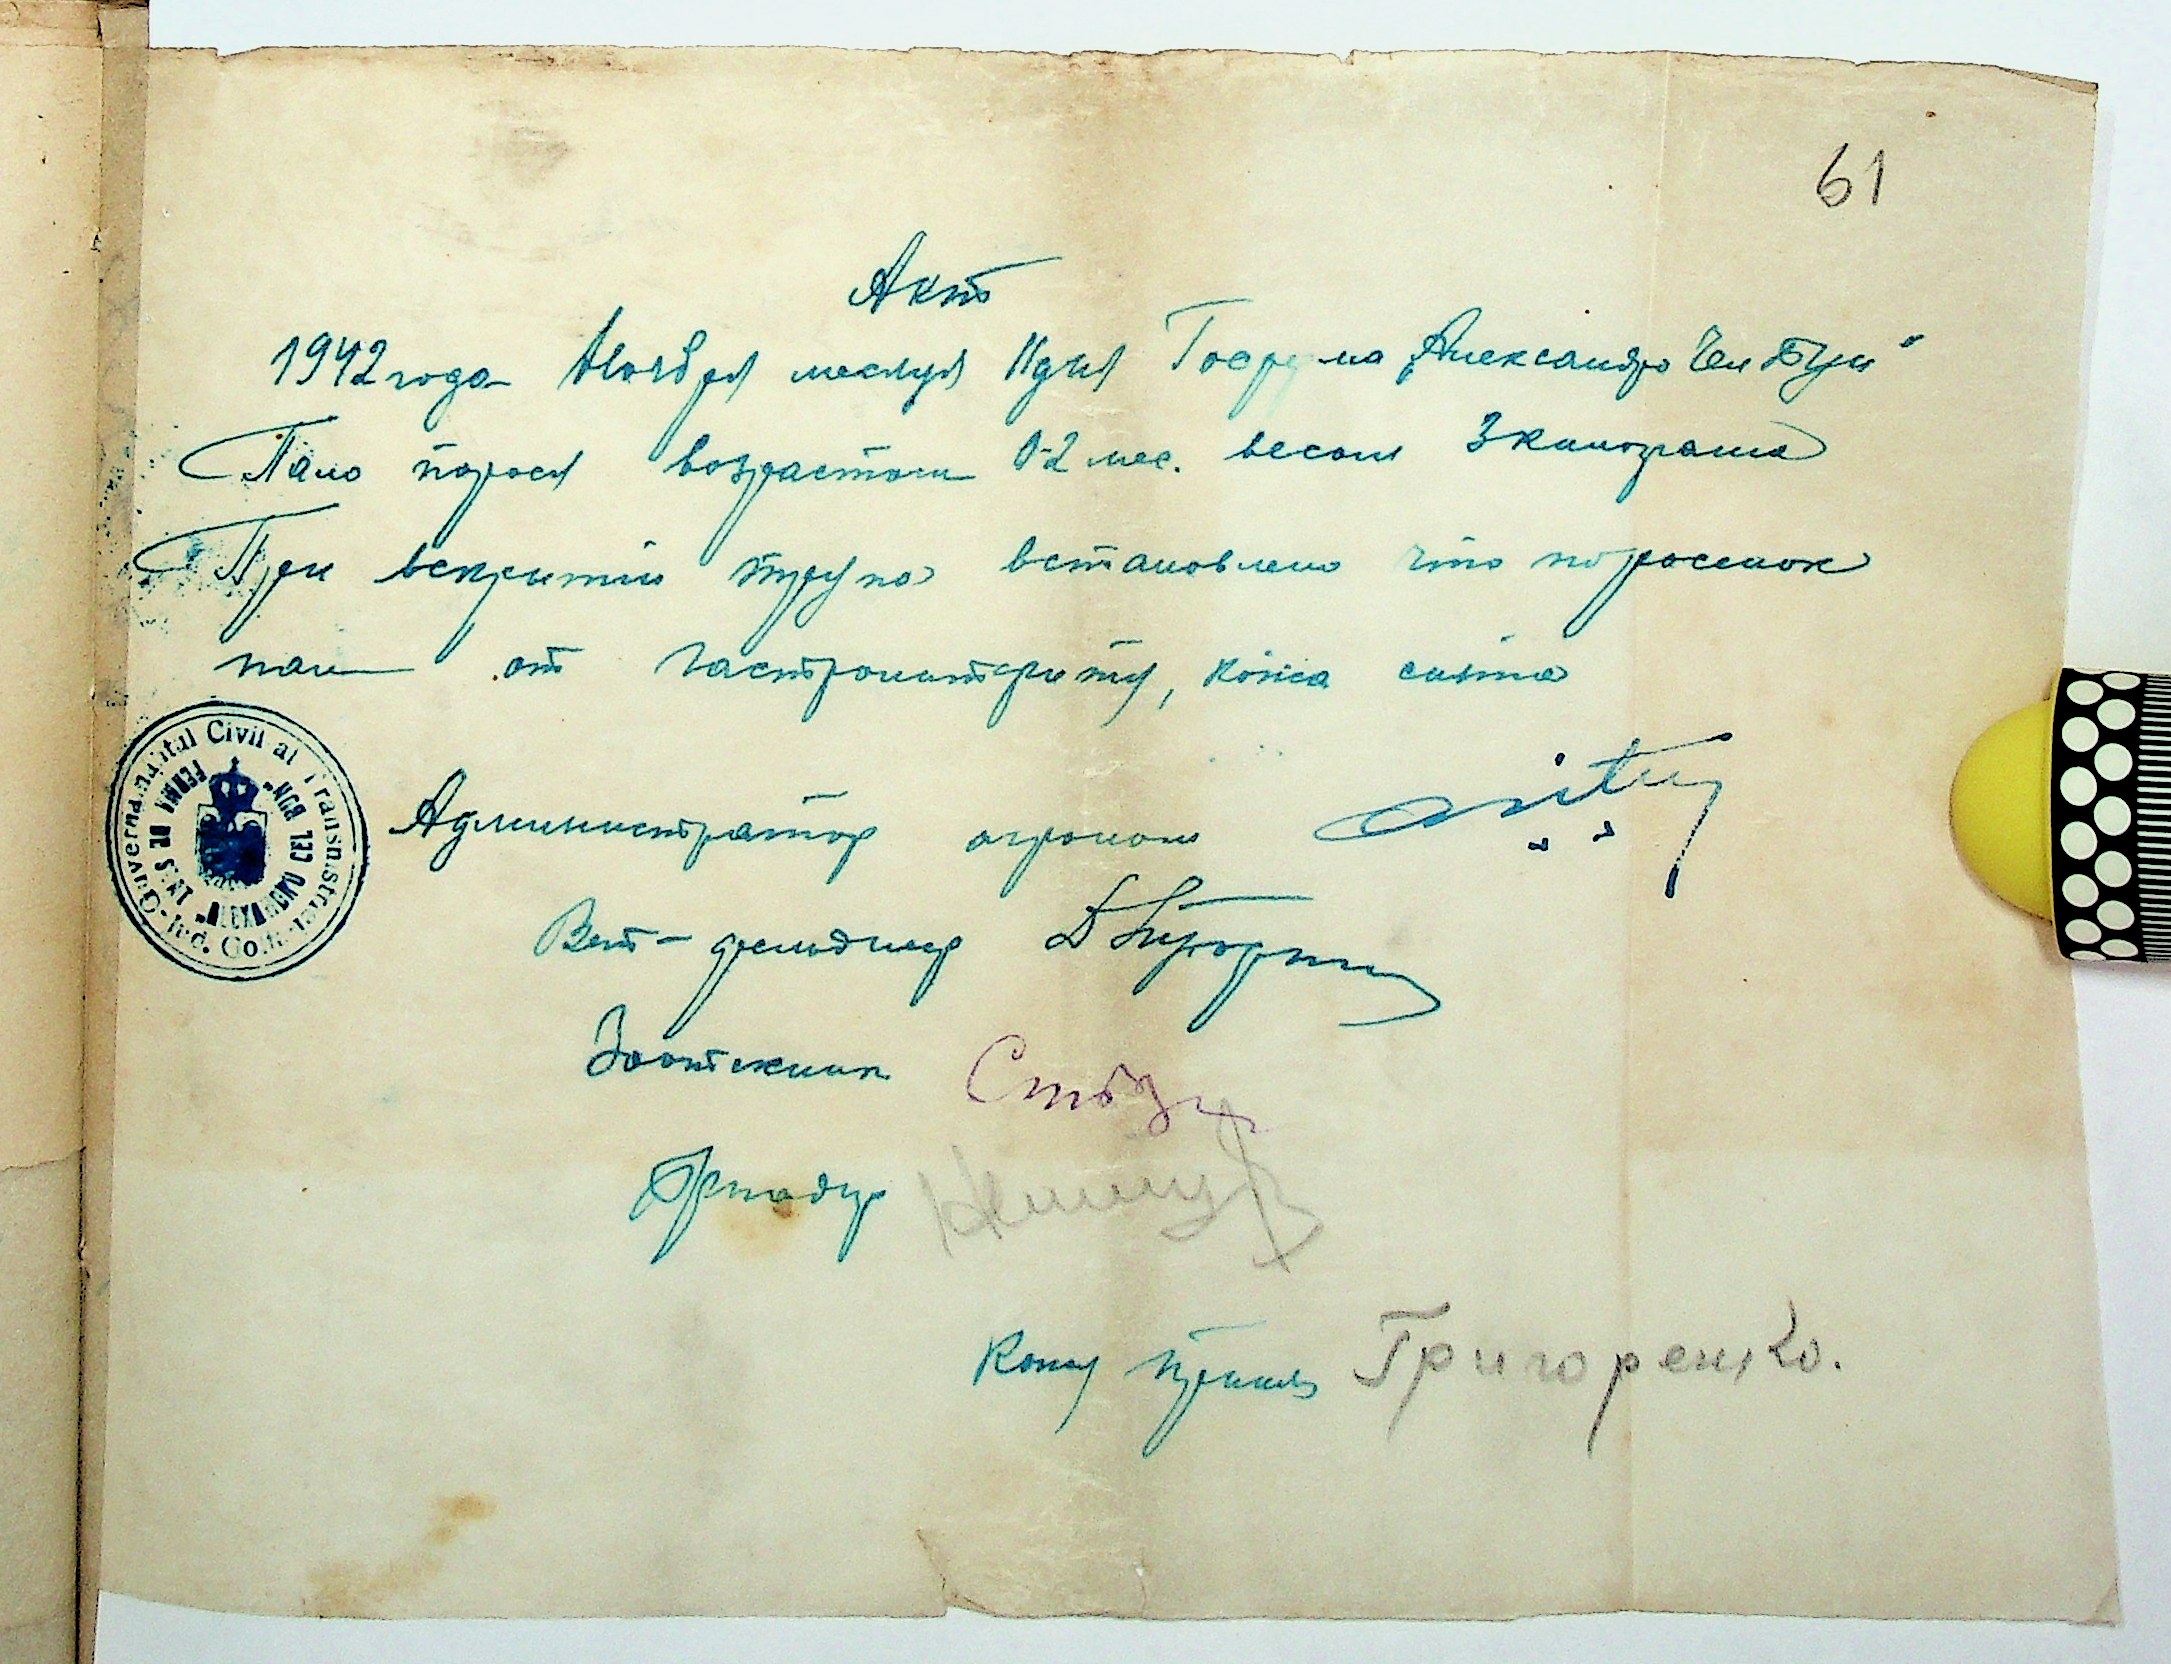 61
Акт
1942 года Ноября месяця 11 дня Госфрма „Александро Чел Бун"
Пало порося возрастом 0-2 мес. весом 3 килограма
При вскритию трупа встановлено што поросенок
пал от гастроинтериту, кожа снята
Guvernamântul Civil al Transnistriei
Jud.
FERMA DE STAT
„ALEXANDRU CEL BUN"
Администратор агроном
Вет-фельдшер
Зоотехник
Бригадир
Кому принял Григоренко.